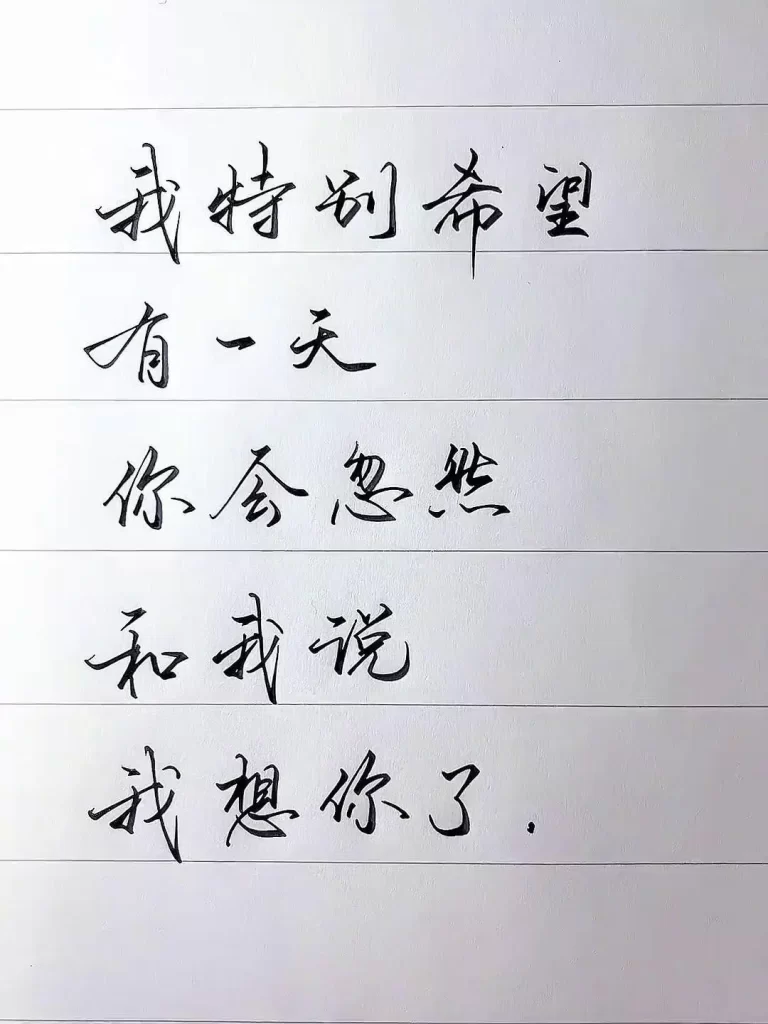 我特别希望
有一天
你会忽然
和我说
我想你了.